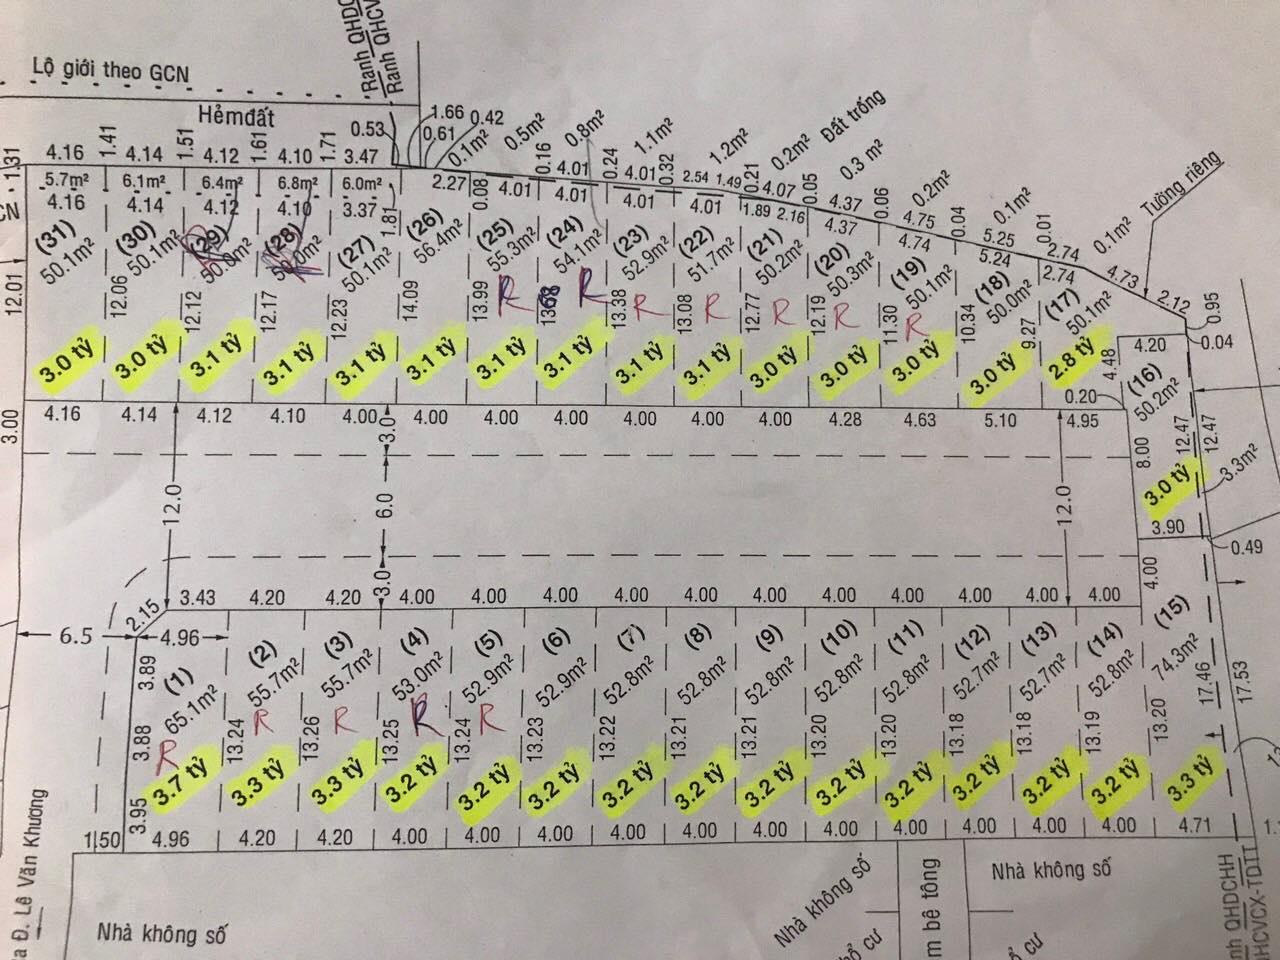 Ranh QHDC
Ranh QHCV
Lộ giới theo GCN
Hẻm đất
0.53
1.66
0.42
0.61
0.1m²
0.5m²
0.8m²
1.1m²
1.2m²
0.2m²
Đất trống
0.3 m²
0.2m²
0.1m²
0.1m²
Tường riêng
1.31
4.16
1.41
4.14
1.51
4.12
1.61
4.10
1.71
3.47
0.16
4.01
0.24
4.01
0.32
2.54
1.49
0.21
4.07
0.05
4.37
0.06
4.75
0.04
5.25
0.01
2.74
4.73
2.12
0.95
0.04
5.7m²
6.1m²
6.4m²
6.8m²
6.0m²
2.27
0.08
4.01
4.01
4.01
4.01
1.89
2.16
4.37
4.74
5.24
2.74
CN
4.16
4.14
4.12
4.10
3.37
1.81
(31)
50.1m²
(30)
50.1m²
(29)
(28)
(27)
50.1m²
(26)
56.4m²
(25)
55.3m²
(24)
54.1m²
(23)
52.9m²
(22)
51.7m²
(21)
50.2m²
(20)
50.3m²
(19)
50.1m²
(18)
50.0m²
(17)
50.1m²
(16)
50.2m²
R
R
R
R
R
R
R
12.01
12.06
12.12
12.17
12.23
14.09
13.99
13.38
13.08
12.77
12.19
11.30
10.34
9.27
4.48
4.20
3.0 tỷ
3.0 tỷ
3.1 tỷ
3.1 tỷ
3.1 tỷ
3.1 tỷ
3.1 tỷ
3.1 tỷ
3.1 tỷ
3.1 tỷ
3.0 tỷ
3.0 tỷ
3.0 tỷ
3.0 tỷ
2.8 tỷ
0.20
3.00
4.16
4.14
4.12
4.10
4.00
3.0
4.00
4.00
4.00
4.00
4.00
4.00
4.28
4.63
5.10
4.95
8.00
12.47
12.47
3.3m²
3.0 tỷ
12.0
6.0
12.0
3.90
0.49
3.0
4.00
2.15
3.43
4.20
4.20
4.00
4.00
4.00
4.00
4.00
4.00
4.00
4.00
4.00
4.00
4.00
6.5
4.96
(1)
65.1m²
(2)
55.7m²
(3)
55.7m²
(4)
53.0m²
(5)
52.9m²
(6)
52.9m²
(7)
52.8m²
(8)
52.8m²
(9)
52.8m²
(10)
52.8m²
(11)
52.8m²
(12)
52.7m²
(13)
52.7m²
(14)
52.8m²
(15)
74.3m²
3.89
3.88
3.95
R
R
R
R
R
13.24
13.26
13.25
13.24
13.23
13.22
13.21
13.21
13.20
13.20
13.18
13.18
13.19
13.20
17.46
17.53
3.7 tỷ
3.3 tỷ
3.3 tỷ
3.2 tỷ
3.2 tỷ
3.2 tỷ
3.2 tỷ
3.2 tỷ
3.2 tỷ
3.2 tỷ
3.2 tỷ
3.2 tỷ
3.2 tỷ
3.2 tỷ
3.3 tỷ
1.50
4.96
4.20
4.20
4.00
4.00
4.00
4.00
4.00
4.00
4.00
4.00
4.00
4.00
4.00
4.71
Đ. Lê Văn Khương
Nhà không số
Nhà không số
m bê tông
Nhà không số
QHDCHH
HCVCX-TDTT